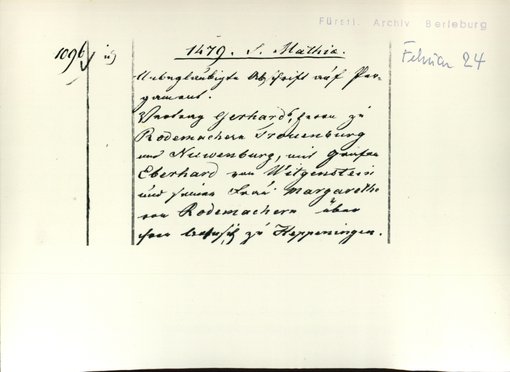 Fürstl. Archiv Berleburg
1096 1479. S. Mathiae.
Februar 24
Unbeglaubigte Abschrift auf Per-
gament.
Vertrag Gerhards, Herrn zu
Rodemachern Cronenburg
und Nuwenburg, mit Grafen
Eberhard von Witgenstein
und seiner Frau Margarethe
von Rodemachern über
ihren zu Heppeningen.